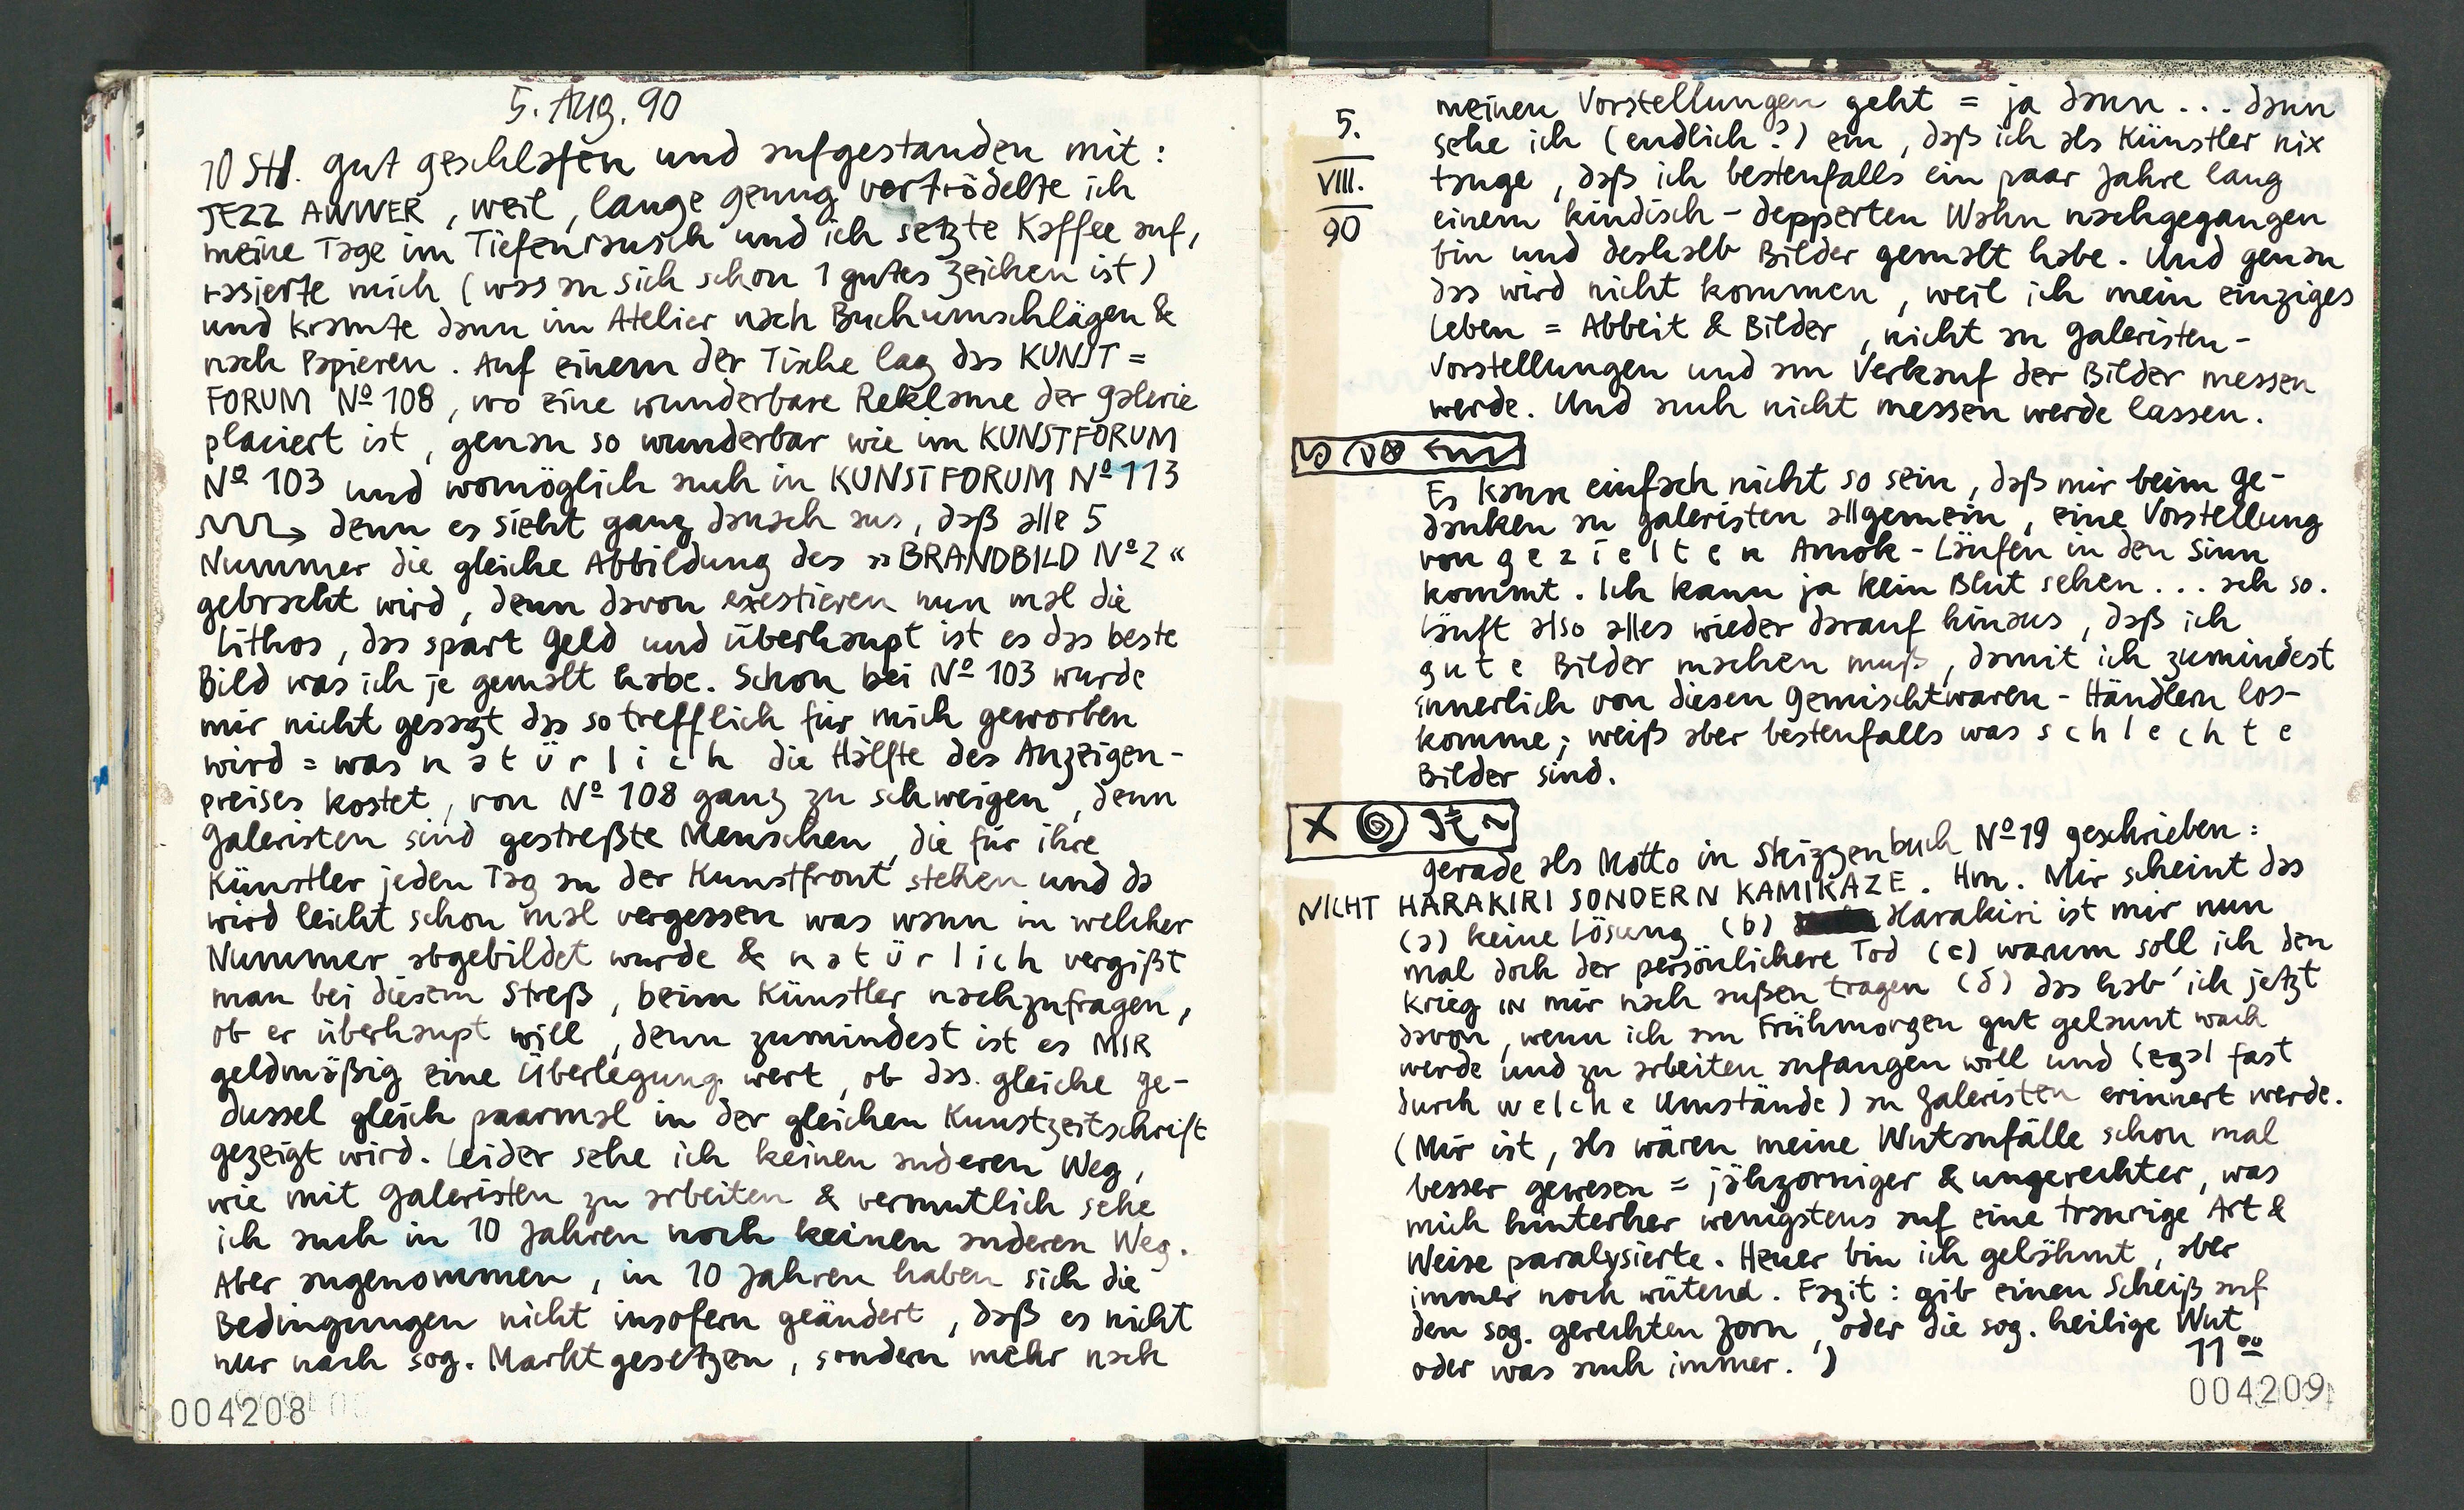 5. Aug. 90
10 Std. gut geschlafen und aufgestanden mit:
JEZZ AWWER, weil, lange genug vertrödelte ich
meine Tage im Tiefenrausch und ich setzte Kaffee auf,
rasierte mich (was an sich schon 1 gutes Zeichen ist)
und kramte dann im Atelier nach Buchumschlägen &
nach Papieren. Auf einem der Tische lag das KUNST =
FORUM Nº 108, wo eine wunderbare Reklame der Galerie
placiert ist, genau so wunderbar wie im KUNSTFORUM
Nº 103 und womöglich auch in KUNSTFORUM Nº 113
denn es sieht ganz danach aus, daß alle 5
Nummer die gleiche Abbildung des »BRANDBILD Nº 2«
gebracht wird, denn davon exestieren nun mal die
Lithos, das spart Geld und überhaupt ist es das beste
Bild was ich je gemalt habe. Schon bei Nº 103 wurde
mir nicht gesagt das so trefflich für mich geworben
wird = was n a t ü r l i c h die Hälfte des Anzeigen-
preises kostet, von Nº 108 ganz zu schweigen, denn
Galeristen sind gestreßte Menschen, die für ihre
Künstler jeden Tag an der Kunstfront stehen und da
wird leicht schon mal vergessen was wann in welcher
Nummer abgebildet wurde & n a t ü r l i c h vergißt
man bei diesem Streß, beim Künstler nachzufragen,
ob er überhaupt will, denn zumindest ist es MIR
geldmäßig eine Überlegung wert, ob das gleiche ge-
dussel gleich paarmal in der gleichen Kunstzeitschrift
gezeigt wird. Leider sehe ich keinen anderen Weg,
wie mit Galeristen zu arbeiten & vermutlich sehe
ich auch in 10 Jahren noch keinen anderen Weg.
Aber angenommen, in 10 Jahren haben sich die
Bedingungen nicht insofern geändert, daß es nicht
nur nach sog. Marktgesetzen, sondern mehr nach
004208
5.
VIII.
90
meinen Vorstellungen geht = ja dann . . . dann
sehe ich (endlich?) ein, daß ich als Künstler nix
tauge, daß ich bestenfalls ein paar Jahre lang
einem kindisch-depperten Wahn nachgegangen
bin und deshalb Bilder gemalt habe. Und genau
das wird nicht kommen, weil ich mein einziges
Leben = Abbeit & Bilder, nicht an Galeristen-
vorstellungen und am Verkauf der Bilder messen
werde. Und auch nicht messen werde lassen.
Es kann einfach nicht so sein, daß mir beim Ge-
danken an Galeristen allgemein, eine Vorstellung
von g e z i e l t e n Amok-Läufen in den Sinn
kommt. Ich kann ja kein Blut sehen . . . ach so.
Läuft also alles wieder darauf hinaus, daß ich
g u t e Bilder machen muß, damit ich zumindest
innerlich von diesen Gemischtwaren-Händlern los-
komme; weiß aber bestenfalls was s c h l e c h t e
Bilder sind.
gerade als Motto in Skizzenbuch Nº 19 geschrieben:
NICHT HARAKIRI SONDERN KAMIKAZE. Hm. Mir scheint das
(a) keine Lösung (b) Harakiri ist mir nun
mal doch der persönlichere Tod (c) warum soll ich den
Krieg IN mir nach außen tragen (d) das hab' ich jetzt
davon, wenn ich am Frühmorgen gut gelaunt wach
werde und zu arbeiten anfangen will und (egal fast
durch w e l c h e Umstände) an Galeristen erinnert werde.
(Mir ist, als wären meine Wutanfälle schon mal
besser gewesen = jähzorniger & ungerechter, was
mich hinterher wenigstens auf eine traurige Art &
Weise paralysierte. Heuer bin ich gelähmt, aber
immer noch wütend. Fazit: gib einen Scheiß auf
den sog. gerechten Zorn, oder die sog. heilige Wut
oder was auch immer.)
11⁰⁰
004209